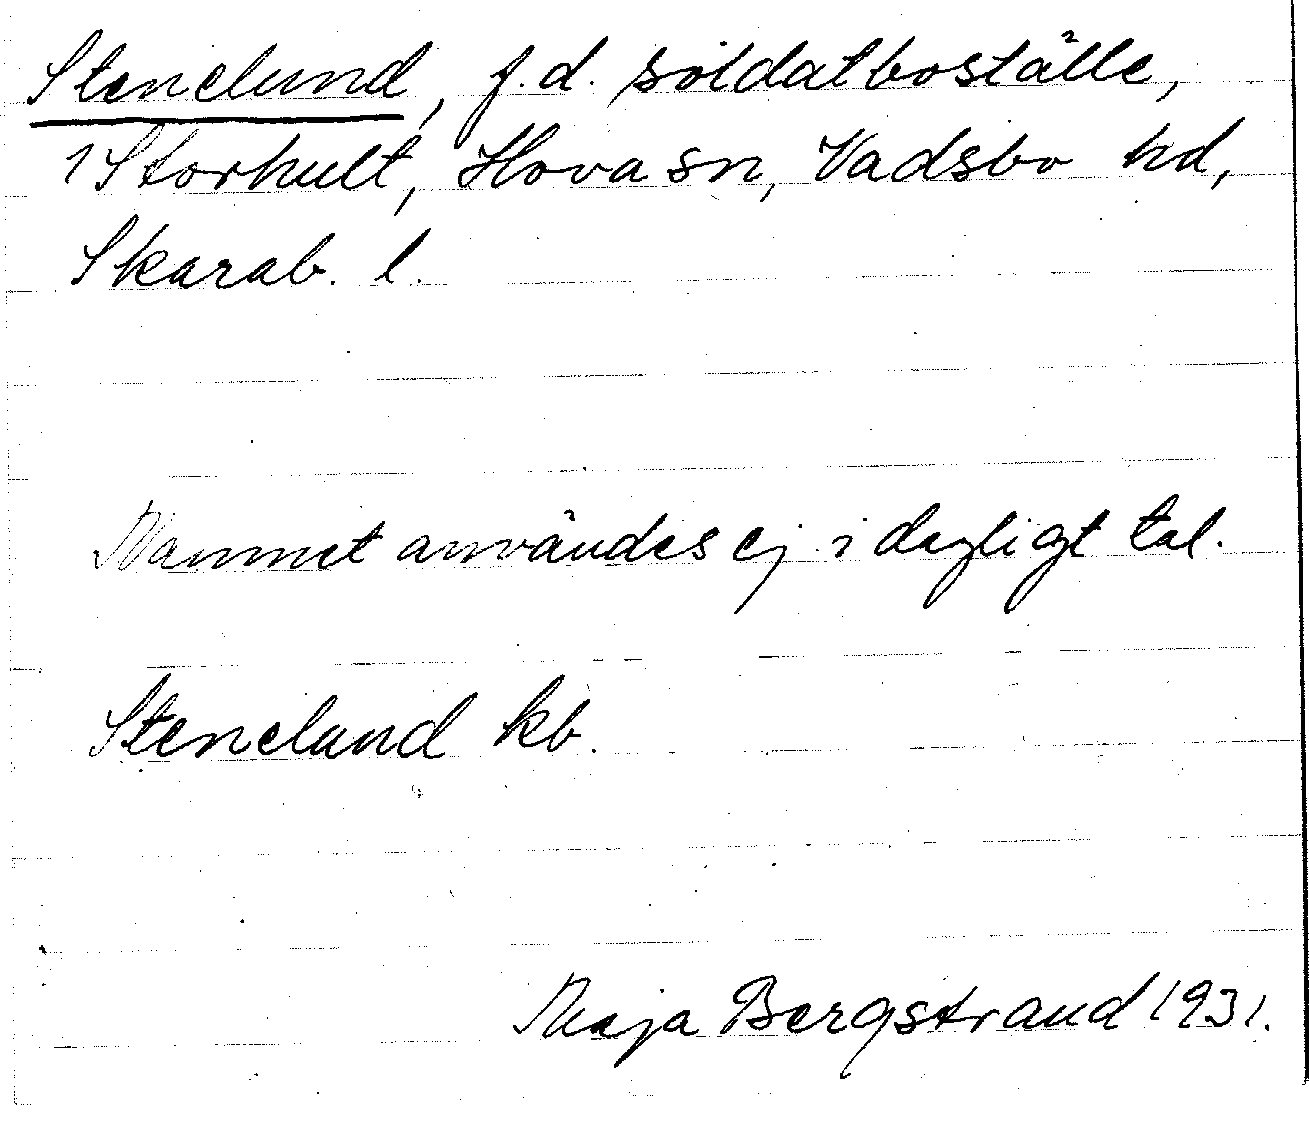 Stenelund, f.d. soldatboställe,
i Storhult, Hova sn, Vadsbo hd,
Skarab. l.
Namnet användes ej i dagligt tal.
Stenelund kb.
Maja Bergstrand 1931.